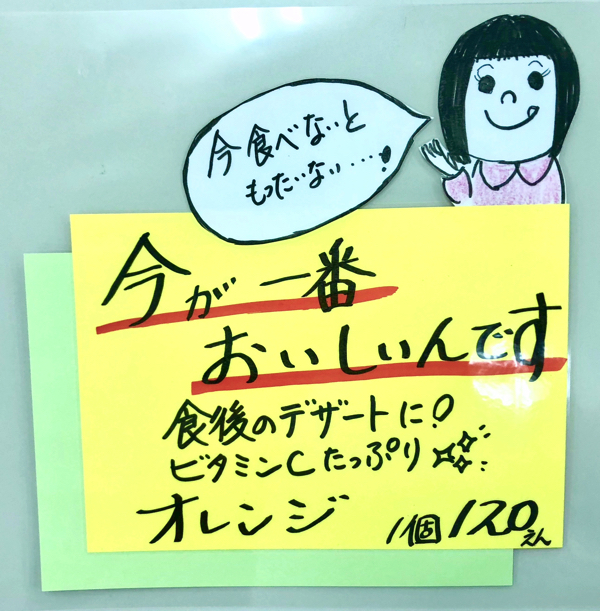 今食べないと
もったいない……!
今が一番
おいしいんです
食後のデザートに!
ビタミンCたっぷり
オレンジ
1個120えん